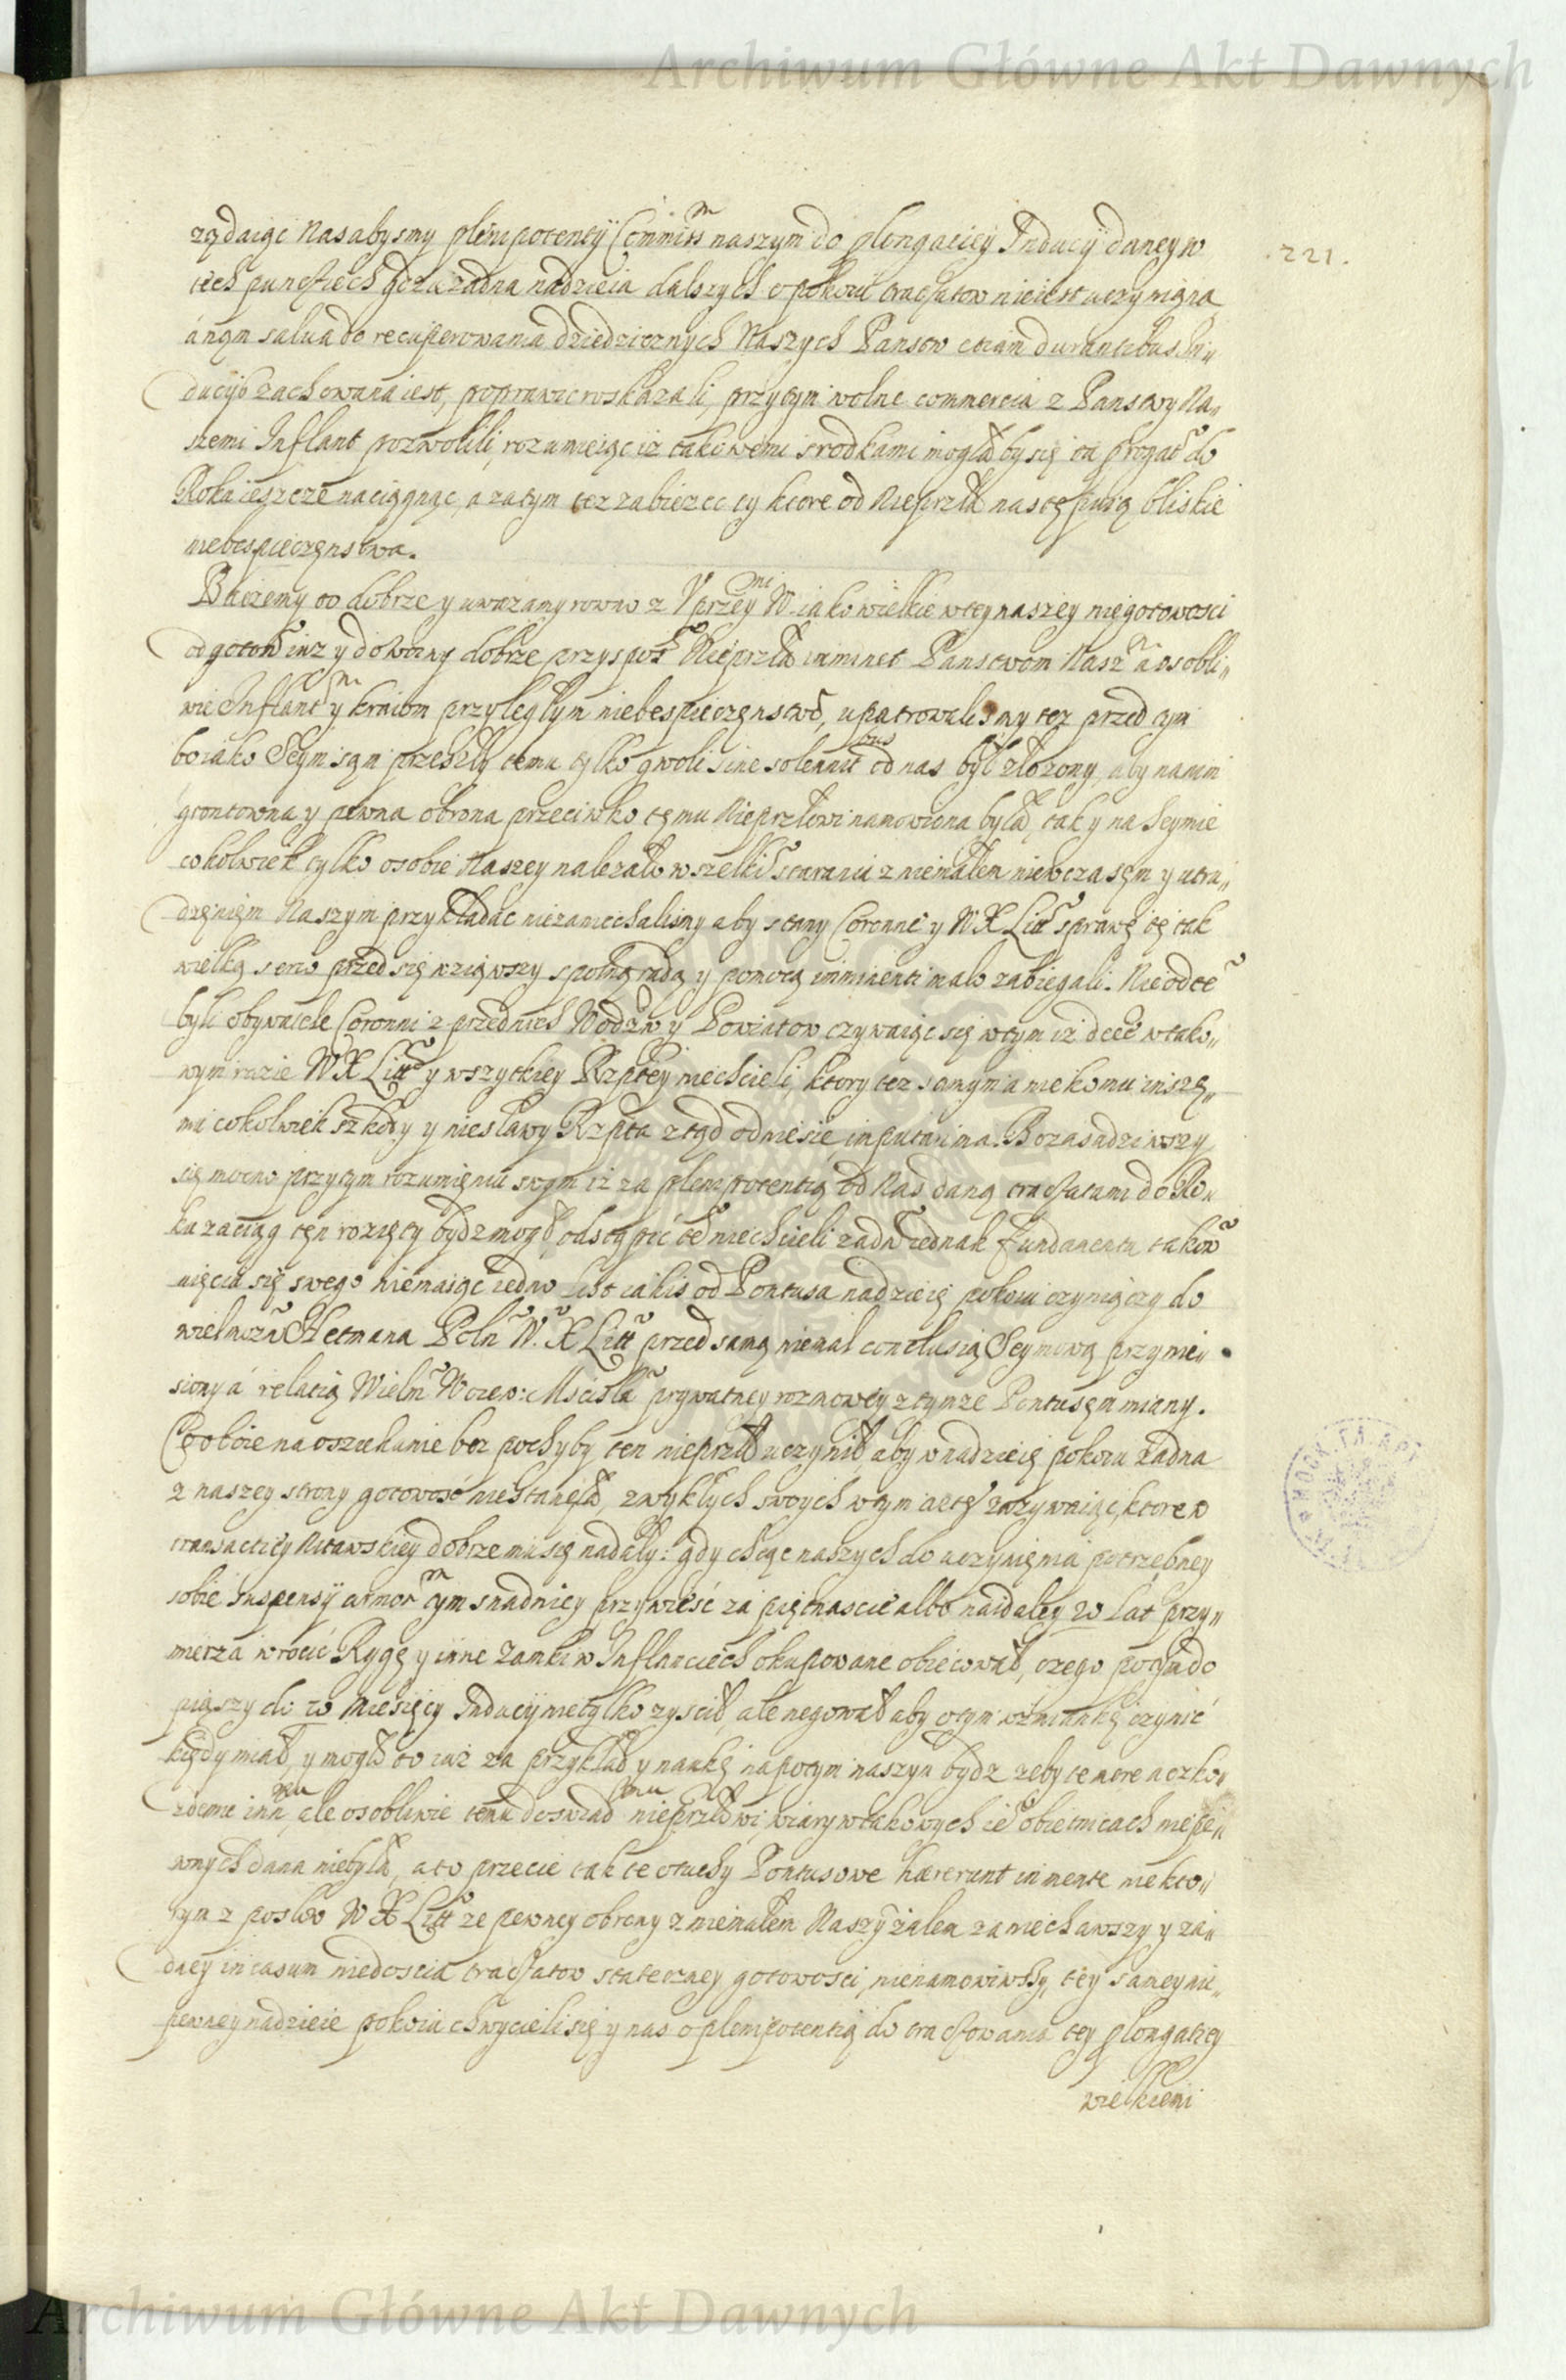 Archiwum Główne Akt Dawnych
221.
żądaiąc Nas abysmy plenipotentÿ Commiss m naszym do plongaciey Inducÿ daney w
tech punctiech gdzie żadna nadzieia dalszych o pokoiu tractatow nieiest uczyniona
do recuperowania dziedzicznych Naszych Panstw etiam durantibus In„
ducÿs zachowana iest, poprawic roskazali, przytym wolne commercia z Panstwy Na„
szemi Inflant pozwolili, rozumieiąc iż takowemi srodkami mogłaby się ta do
Roka ieszcze naciągnąc, a zatym tez zabiezec ty ktore od Nieprzła nastepuią bliskie
niebespieczęnstwa.
Baczemy to dobrze y uwazamy rowno z Vprzey mi W. iako wielkie w tey naszey niegotowosci
od iuz y do woyny dobrze Nieprzła iminet Panstwom Nasz a osobli„
wie Inflant m y kraiom przyległym niebespieczęnstwo, upatrowalismy tez przed tym
bo iako Seym sam przeszły temu tylko gwoli sine solennit bus od nas był złozony, aby na nim
grontowna y pewna obrona przeciwko temu Nieprzłowi namowiona była, tak y na Seymie
cokolwiek tylko osobie Naszey nalezało wszelkie starania z niemałem niewczasęm y utru„
dzęnięm Naszym przykładac niezaniechalismy aby stany Coronne y W X Litt sprawę tę tak
wielką serio przed się wziąwszy spolną radą y pomocą imminenti malo zabiegali. Nie od te
byli obywatele Coronni z przednieh Wodztw y Powiatow ozywaiąc się w tym iż w tako„
wym razie W X Litt y wszytkiey Rzptey niechcieli, ktory tez samym a nie komu inszę„
mu cokolwiek szkody y niesławy Rzpta ztąd odniesie imputari ma. Bo zasadziwszy
się mocno przy tym rozumięniu swym iż za plenipotentią od Nas daną tractatami do Ro„
ka zaciąg ten rozięty bydz mogł, odstąpić niechcieli żadn iednak fundamentu takow
mięcia się swego niemaiąc iedno list iakis od Pontusa nadzieię pokoiu czyniączy do
wielmoz Hetmana Poln W. X Litt przed samą niemal conclusią Seymową przynie„
siony a relatią Wielm Woiew: Mścisła prywatney rozmowy z tymze Pontusęm miany.
Co on na oszukanie bez pochyby ten nieprzła uczynił aby w nadzieię pokoiu żadna
z naszey strony gotowość niestanęła, zwykłych swoich w tym zazywaiąc, ktore w
transactiey Mitawskiey dobrze mu się nadały: gdy chcąc naszych do uczynięnia potrzebney
sobie suspensÿ armor m tym snadniey przywieść za piętnascie albo naidaley 20 Lat przy„
mierza wrocić Rygę y inne Zamki w Inflanciech okupowane obiecował, czego potym do
piąszy do 20 Miesięcy Inducÿ nietylko zyscił, ale negował aby o tym wzmiankę czynić
kiędy miał, y mogło to iuż za przykład y naukę napotym naszym bydz zeby temere uczko„
dzone inn, ale osobliwie temu doswiad mu nieprzłowi, wiary w takowych ie obietnicach niepe„
wnych dana niebyła, a to przecie tak te otuchy Pontusowe hærerunt in mente niekto„
rym z posłow W X Litt ze pewney obrony z niemałem Naszÿ żalem zaniechawszy y za„
dney in casum niedoscia tractatow stateczney gotowosci, nienamowiwszy, tey samey nie„
pewney nadzieie pokoiu chwycieli się y nas o plenipotentią do tractowania tey plongatiey
wielkiemi
Archiwum Główne Akt Dawnych